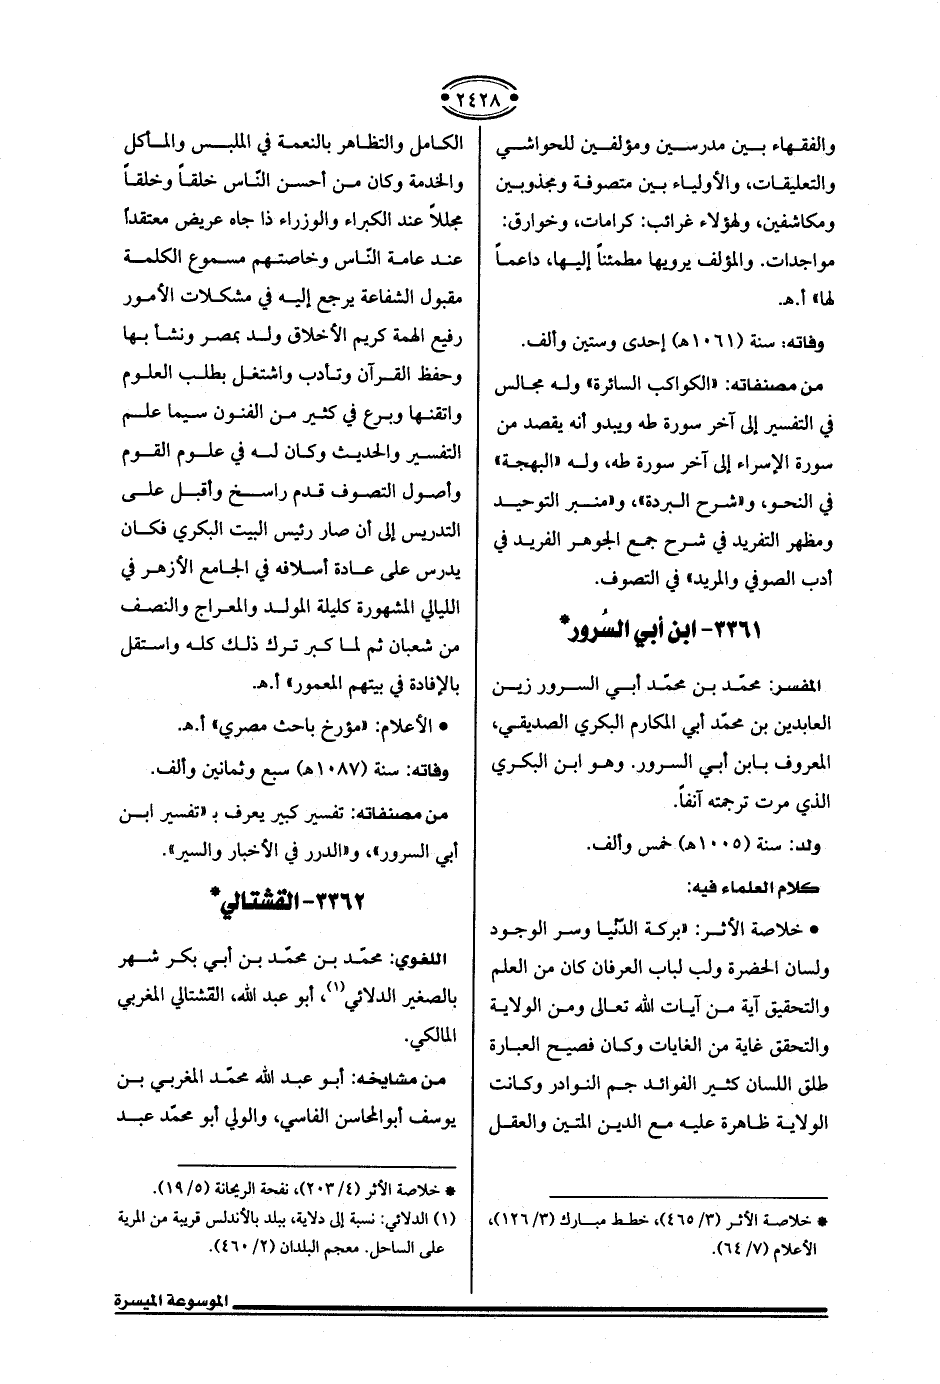 ٢٤٢٨
والفقهاء بين مدرسين ومؤلفين للحواشي
والتعليقات، والأولياء بين متصوفة ومجذوبين
ومكاشفين، ولهؤلاء غرائب: كرامات، وخوارق:
مواجدات. والمؤلف يرويها مطمئناً إليها، داعماً
لها» أ.هـ.
وفاته: سنة (١٠٦١هـ) إحدى وستين وألف.
من مصنفاته: «الكواكب السائرة» وله مجالس
في التفسير إلى آخر سورة طه ويبدو أنه يقصد من
سورة الإسراء إلى آخر سورة طه، وله «البهجة»
في النحو، و«شرح البردة»، و«منبر التوحيد
ومظهر التفريد في شرح جمع الجوهر الفريد في
أدب الصوفي والمريد» في التصوف.
٣٣٦١- ابن أبي السُرور*
المفسر: محمّد بن محمّد أبي السرور زين
العابدين بن محمّد أبي المكارم البكري الصديقي،
المعروف بابن أبي السرور. وهو ابن البكري
الذي مرت ترجمته آنفاً.
ولد: سنة (١٠٠٥هـ) خمس وألف.
كلام العلماء فيه:
• خلاصة الأثر: «بركة الدّنيا وسر الوجود
ولسان الحضرة ولب لباب العرفان كان من العلم
والتحقيق آية من آيات الله تعالى ومن الولاية
والتحقق غاية من الغايات وكان فصيح العبارة
طلق اللسان كثير الفوائد جم النوادر وكانت
الولاية ظاهرة عليه مع الدين المتين والعقل
* خلاصة الأثر (٣/ ٤٦٥)، خطط مبارك (٣/ ١٢٦)،
الأعلام (٧/ ٦٤).
الكامل والتظاهر بالنعمة في الملبس والمأكل
والخدمة وكان من أحسن النّاس خلقاً وخلقاً
مجللاً عند الكبراء والوزراء ذا جاه عريض معتقداً
عند عامة النّاس وخاصتهم مسموع الكلمة
مقبول الشفاعة يرجع إليه في مشكلات الأمور
رفيع الهمة كريم الأخلاق ولد بمصر ونشأ بها
وحفظ القرآن وتأدب واشتغل بطلب العلوم
واتقنها وبرع في كثير من الفنون سيما علم
التفسير والحديث وكان له في علوم القوم
وأصول التصوف قدم راسخ وأقبل على
التدريس إلى أن صار رئيس البيت البكري فكان
يدرس على عادة أسلافه في الجامع الأزهر في
الليالي المشهورة كليلة المولد والمعراج والنصف
من شعبان ثم لما كبر ترك ذلك كله واستقل
بالإفادة في بيتهم المعمور» أ.هـ.
• الأعلام: «مؤرخ باحث مصري» أ.هـ.
وفاته: سنة (١٠٨٧هـ) سبع وثمانين وألف.
من مصنفاته: تفسير كبير يعرف بـ «تفسير ابن
أبي السرور»، و«الدرر في الأخبار والسير».
٣٣٦٢- القشتالي*
اللغوي: محمّد بن محمّد بن أبي بكر شهر
بالصغير الدلائي(١)، أبو عبد الله، القشتالي المغربي
المالكي.
من مشايخه: أبو عبد الله محمّد المغربي بن
يوسف أبو المحاسن الفاسي، والولي أبو محمّد عبد
* خلاصة الأثر (٤/ ٢٠٣)، نفحة الريحانة (٥/ ١٩).
(١) الدلائي: نسبة إلى دلاية، ببلد بالأندلس قريبة من المرية
على الساحل. معجم البلدان (٢/ ٤٦٠).
الموسوعة الميسرة